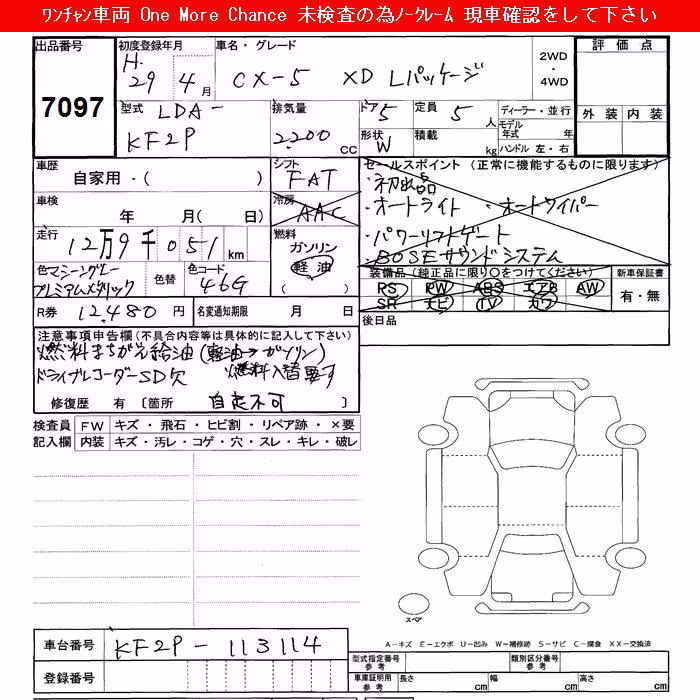 ﾜﾝﾁｬﾝ車両 One More Chance 未検査の為ﾉｰｸﾚｰﾑ 現車確認をして下さい
出品番号
7097
初度登録年月
H.
29 4月
車名・グレード
CX-5 XD Lパッケージ
2WD
・
4WD
評価点
外装 内装
型式
LDA-
KF2P
排気量
2200
cc
ドア
5
定員
5
人
形状
W
積載
kg
ディーラー・並行
モデル
年式 年
ハンドル 左・右
車歴
自家用・( )
シフト
FAT
車検
年 月( 日)
冷房
AAC
走行
12万9千051
km
燃料
ガソリン
軽油
( )
色
マシーングレー
プレミアムメタリック
色替
色コード
46G
R券
12,480 円
名変通知期限
月 日
セールスポイント (正常に機能するものに限ります)
・初出品
・オートライト ・オートワイパー
・パワーリフトゲート
・BOSEサウンドシステム
装備品(純正品に限り○をつけてください)
RS PW ABS エアB AW
SR ナビ TV カワ
新車保証書
有・無
後日品
注意事項申告欄(不具合内容等は具体的に記入して下さい)
燃料まちがえ給油(軽油→ガソリン)
ドライブレコーダーSD欠 燃料入替要す
修復歴 有 [箇所 自走不可 ]
検査員
記入欄
FW キズ・飛石・ヒビ割・リペア跡・×要
内装 キズ・汚レ・コゲ・穴・スレ・キレ・破レ
スペア
A-キズ E-エクボ U-凹み W-補修跡 S-サビ C-腐食 XX-交換済
車台番号
KF2P-113114
登録番号
型式指定番号
参考
類別区分番号
参考
車庫証明用
参考
長さ cm
幅 cm
高さ cm